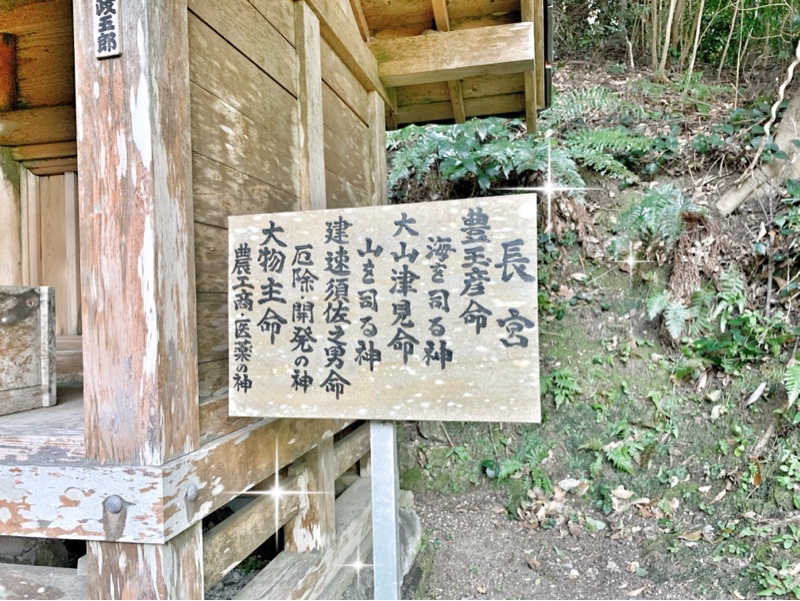 長宮
豊玉彦命
海を司る神
大山津見命
山を司る神
建速須佐之男命
厄除・開発の神
大物主命
農工商・医薬の神
五郎